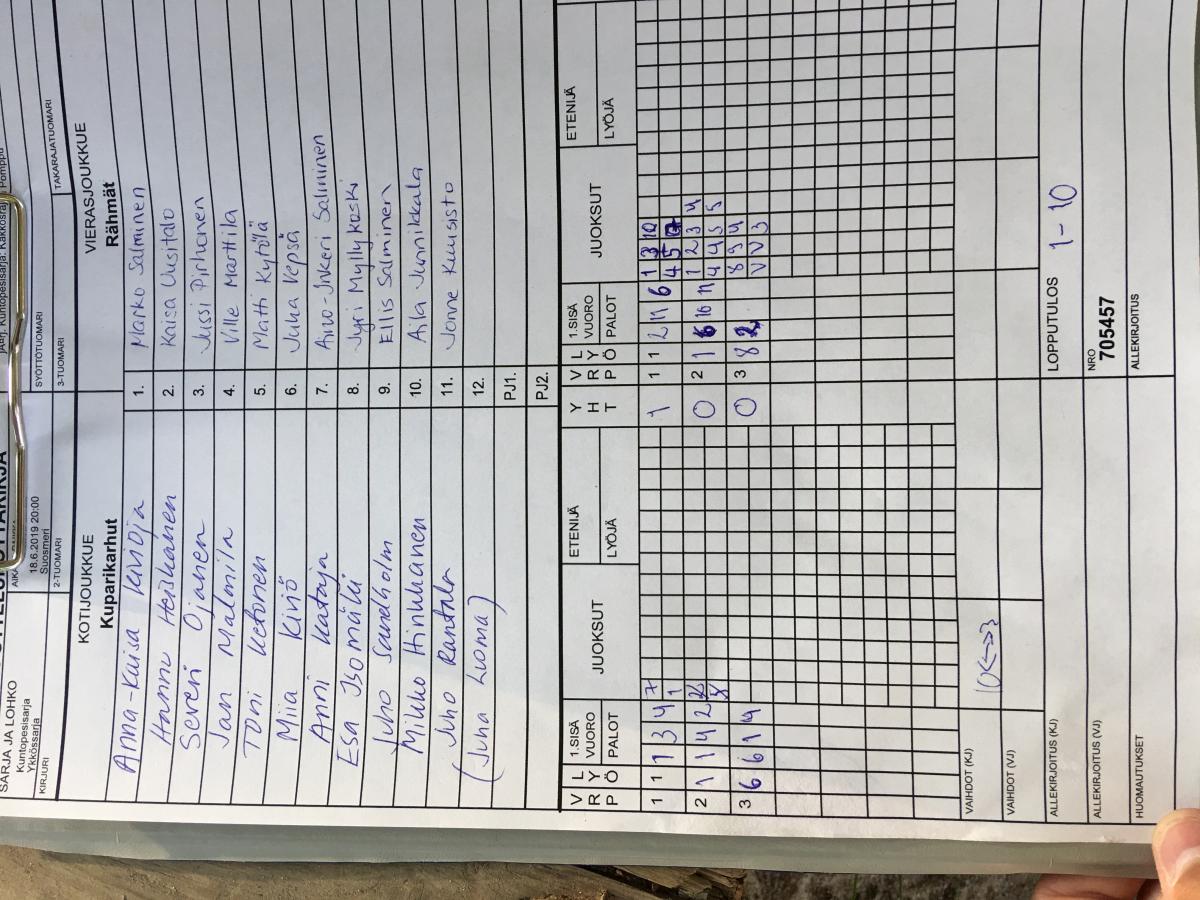 SARJA JA LOHKO
Kuntopesisarja
Ykkössarja
18.6.2019 20:00
Suosmeri
KIRJURI
2-TUOMARI
SYÖTTÖTUOMARI
3-TUOMARI
TAKARAJATUOMARI
KOTIJOUKKUE
Kuparikarhut
VIERASJOUKKUE
Rähmät
Anna-Kaisa 1. Marko Salminen
Hannu Heiskanen 2. Kaisa Uusitalo
Severi Ojanen 3. Jussi Pirhonen
Jan Malmila 4. Ville Marttila
Toni Ketonen 5. Matti Kytölä
Miia Kinö 6. Juha Vepsä
Anni Kataja 7. Aino-Inkeri Salminen
Esa Isomäki 8. Jyri Myllykoski
Juho Sandholm 9. Ellis Salminen
Mikko Hinkkanen 10. Aila Junnikkala
Juho Rantala 11. Jonne Kuusisto
(Juha Luoma) 12.
PJ1.
PJ2.
VRP LYÖ 1.SISÄ VUORO PALOT JUOKSUT ETENIJÄ LYÖJÄ YHT VRP LYÖ 1.SISÄ VUORO PALOT JUOKSUT ETENIJÄ LYÖJÄ
1 1 1 3 4 7 1 1 1 1 2 11 6 1 3 10
4 5
2 1 1 4 2 0 2 1 6 10 11 1 2 3 4
4 4 5 5
3 6 6 1 4 0 3 8 8 2 8 9 4
V V 3
VAIHDOT (KJ) 10<->3
VAIHDOT (VJ)
ALLEKIRJOITUS (KJ) LOPPUTULOS 1-10
ALLEKIRJOITUS (VJ) NRO
705457
HUOMAUTUKSET ALLEKIRJOITUS